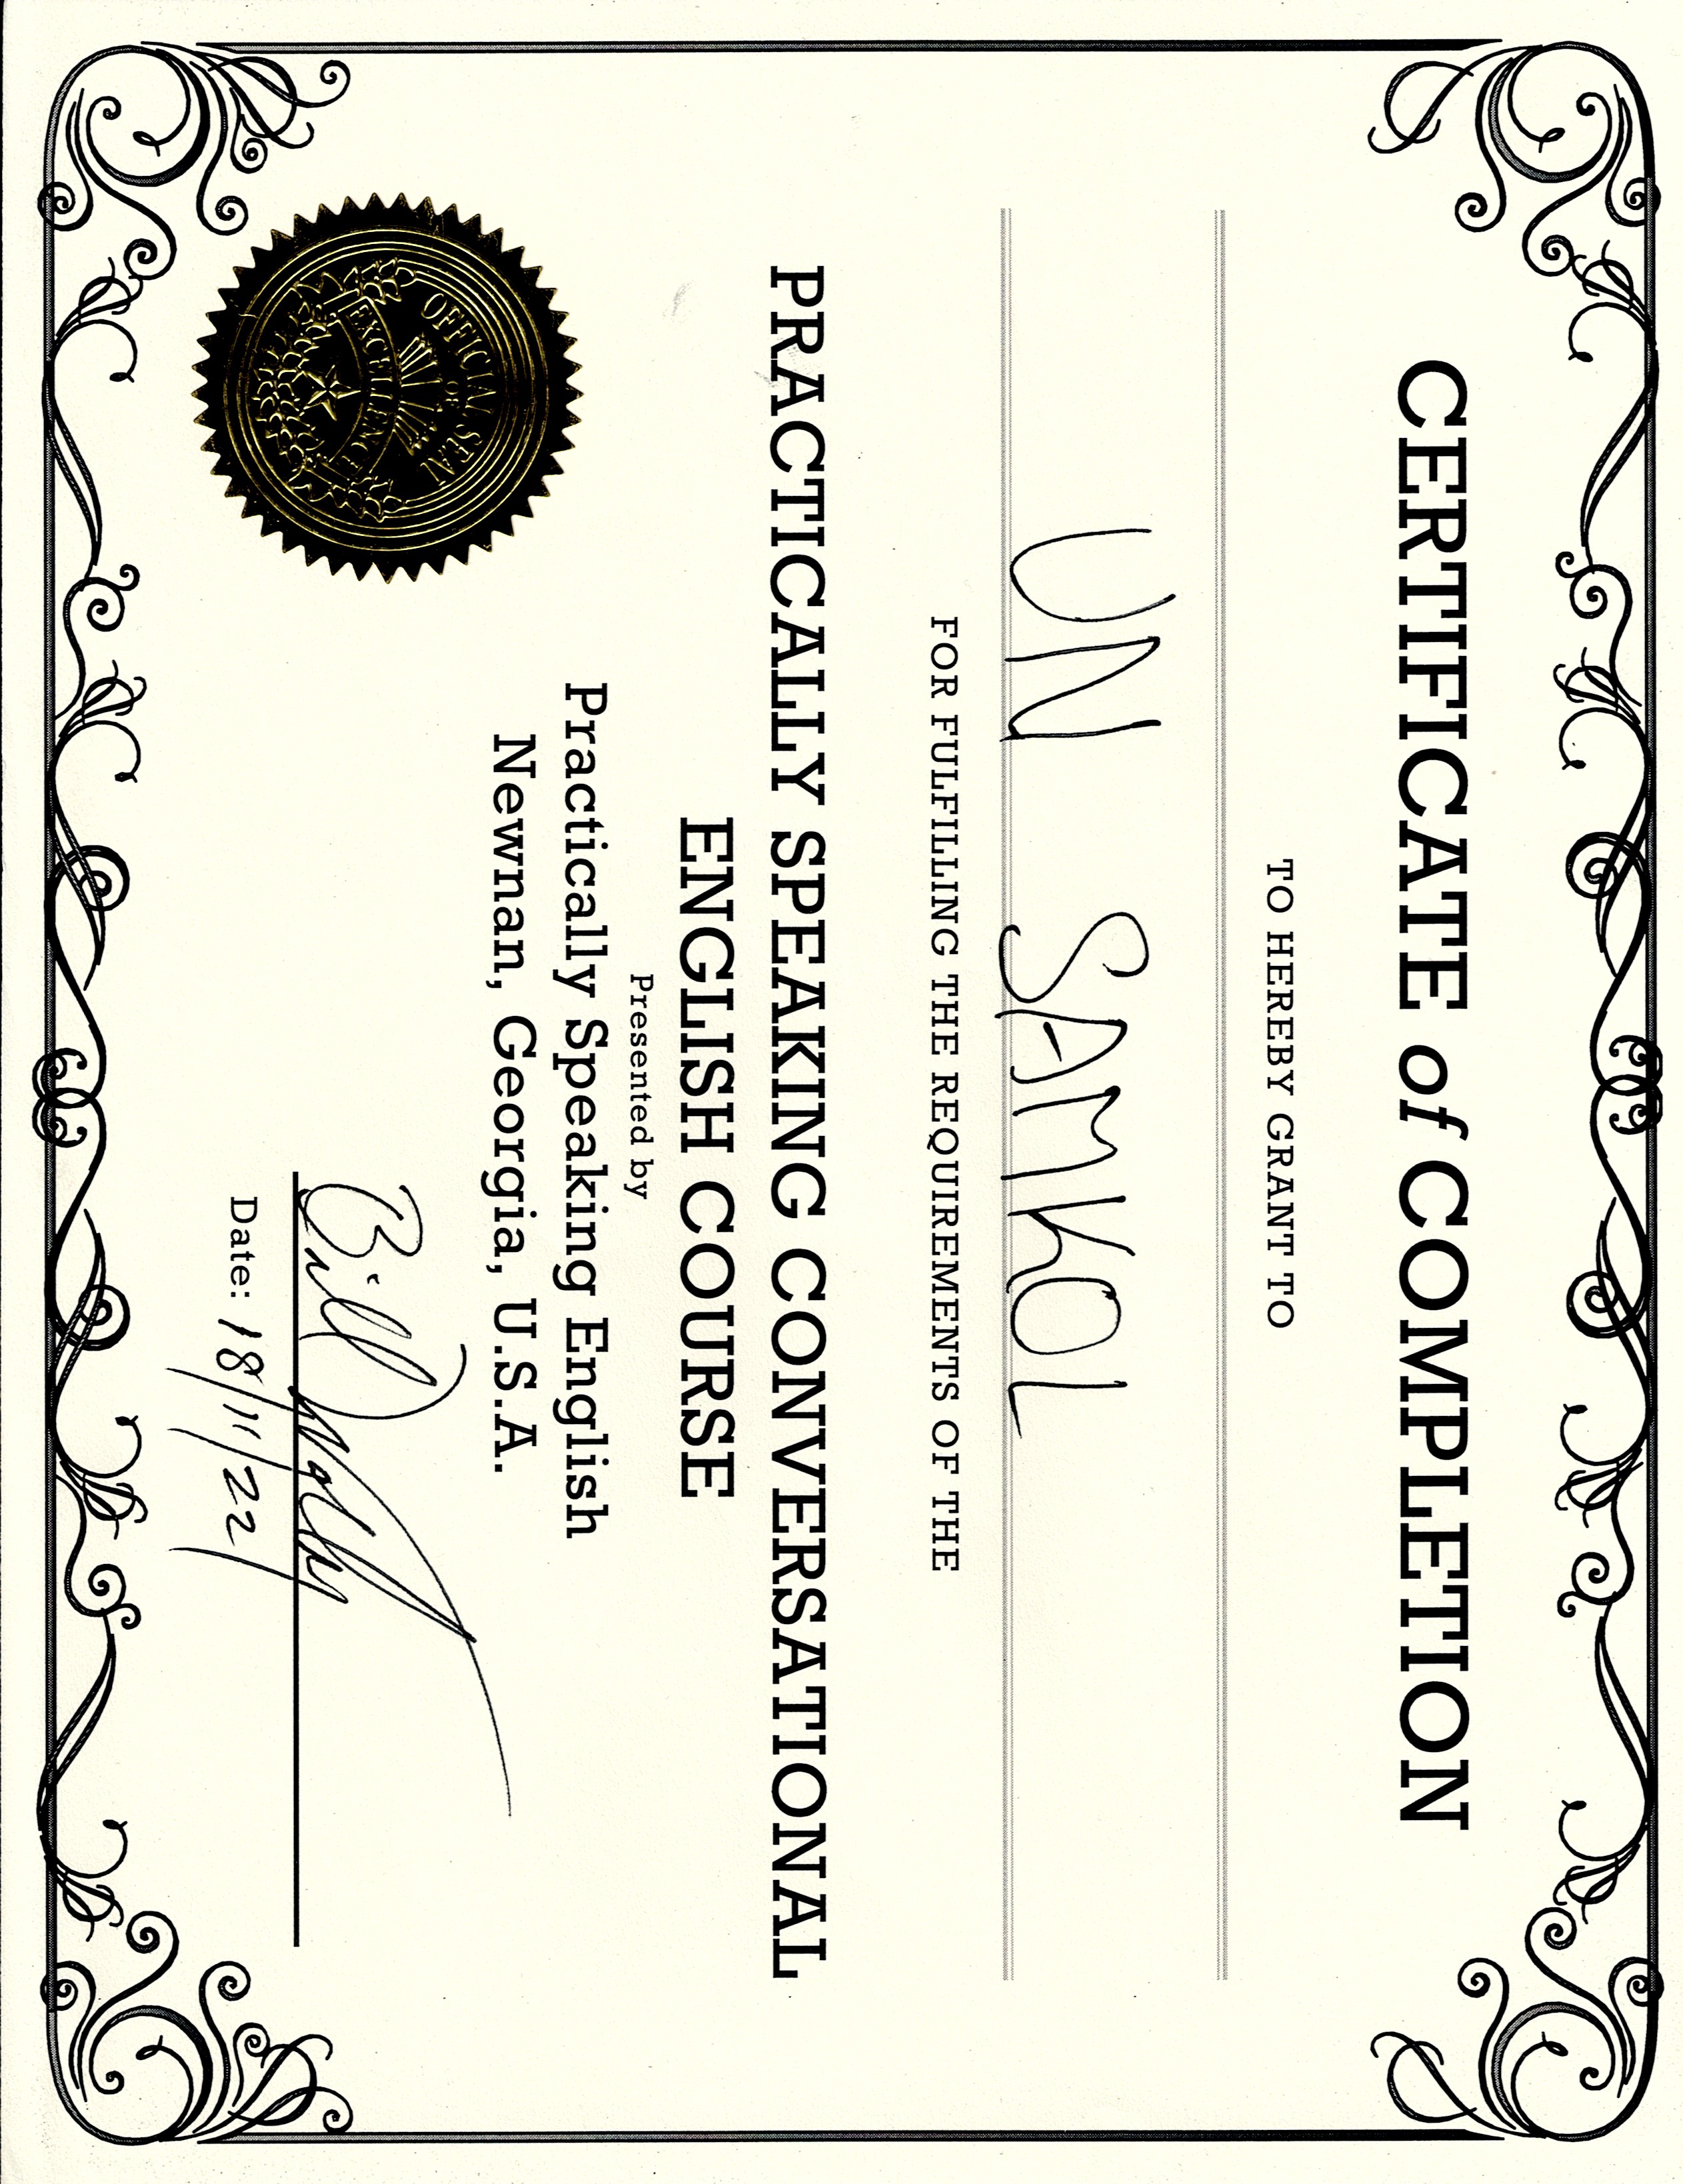 CERTIFICATE of COMPLETION
TO HEREBY GRANT TO
UN SAMKOL
FOR FULFILLING THE REQUIREMENTS OF THE
PRACTICALLY SPEAKING CONVERSATIONAL
ENGLISH COURSE
Presented by
Practically Speaking English
Newnan, Georgia, U.S.A.
OFFICIAL SEAL
OF
EXCELLENCE
Bill
Date: 18/11/22